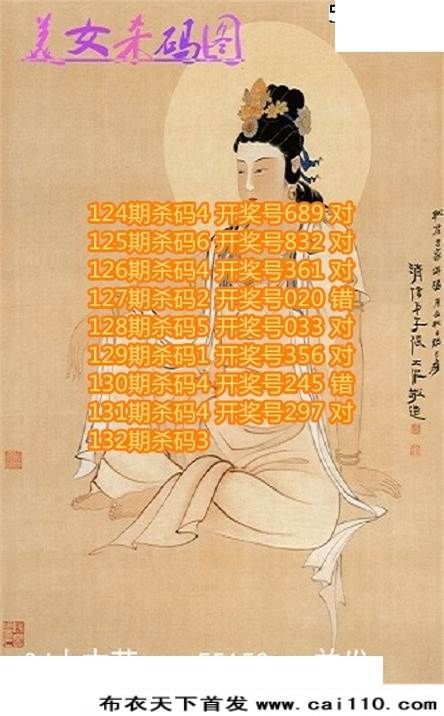 美女杀码图
124期杀码4 开奖号689 对
125期杀码6 开奖号832 对
126期杀码4 开奖号361 对
127期杀码2 开奖号020 错
128期杀码5 开奖号033 对
129期杀码1 开奖号356 对
130期杀码4 开奖号245 错
131期杀码4 开奖号297 对
132期杀码3
布衣天下首发 www.cai110.com